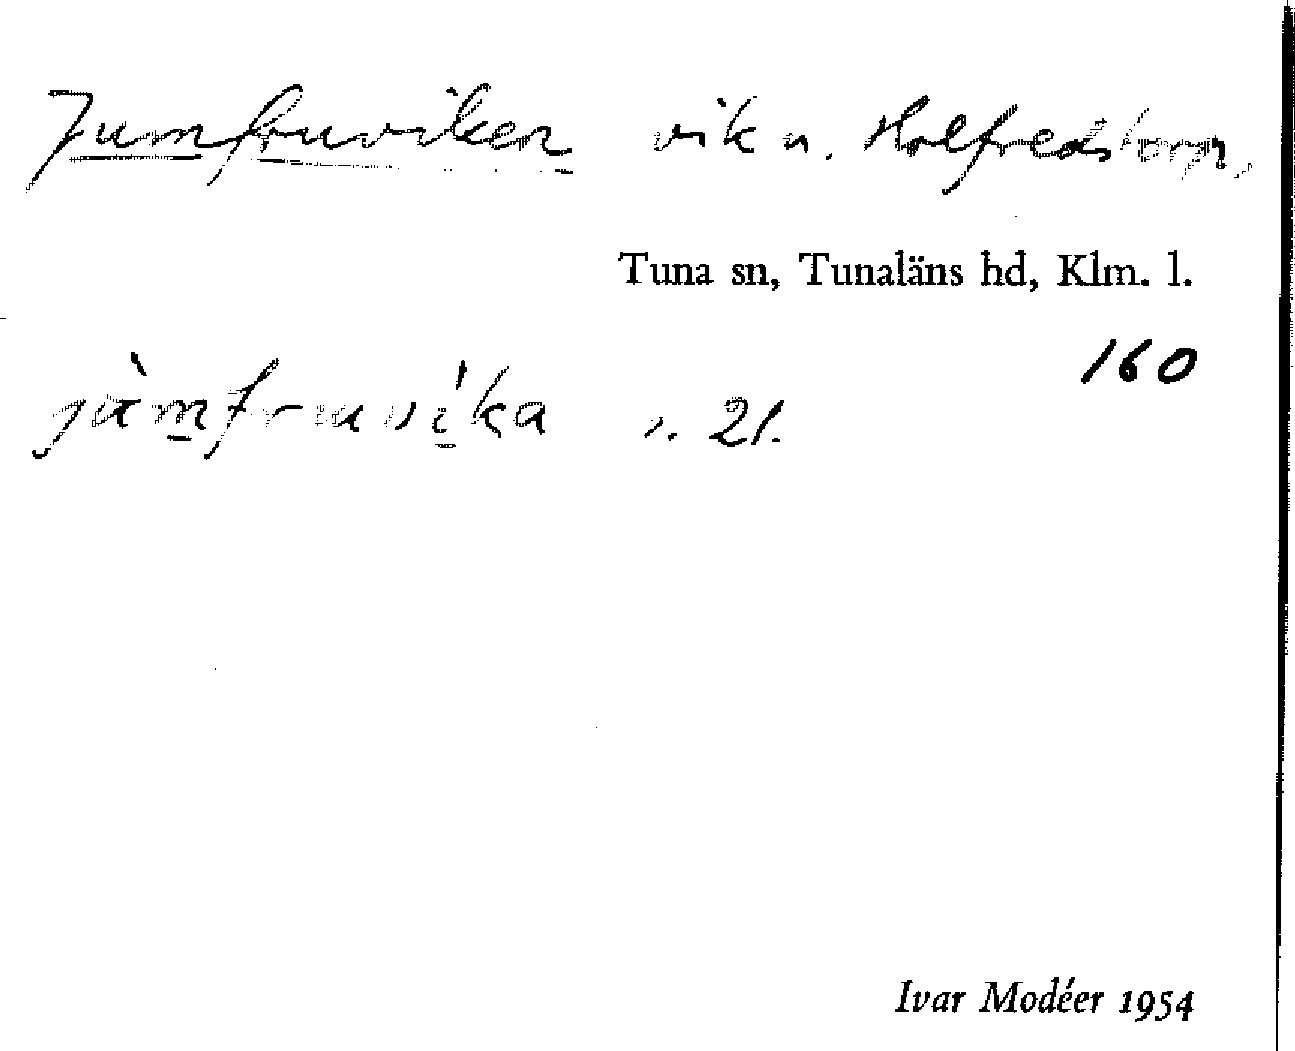 Jumfruviken vik n. Holfredstorp,
Tuna sn, Tunaläns hd, Klm. l.
160
jùmfruvíka s. 21.
Ivar Modéer 1954